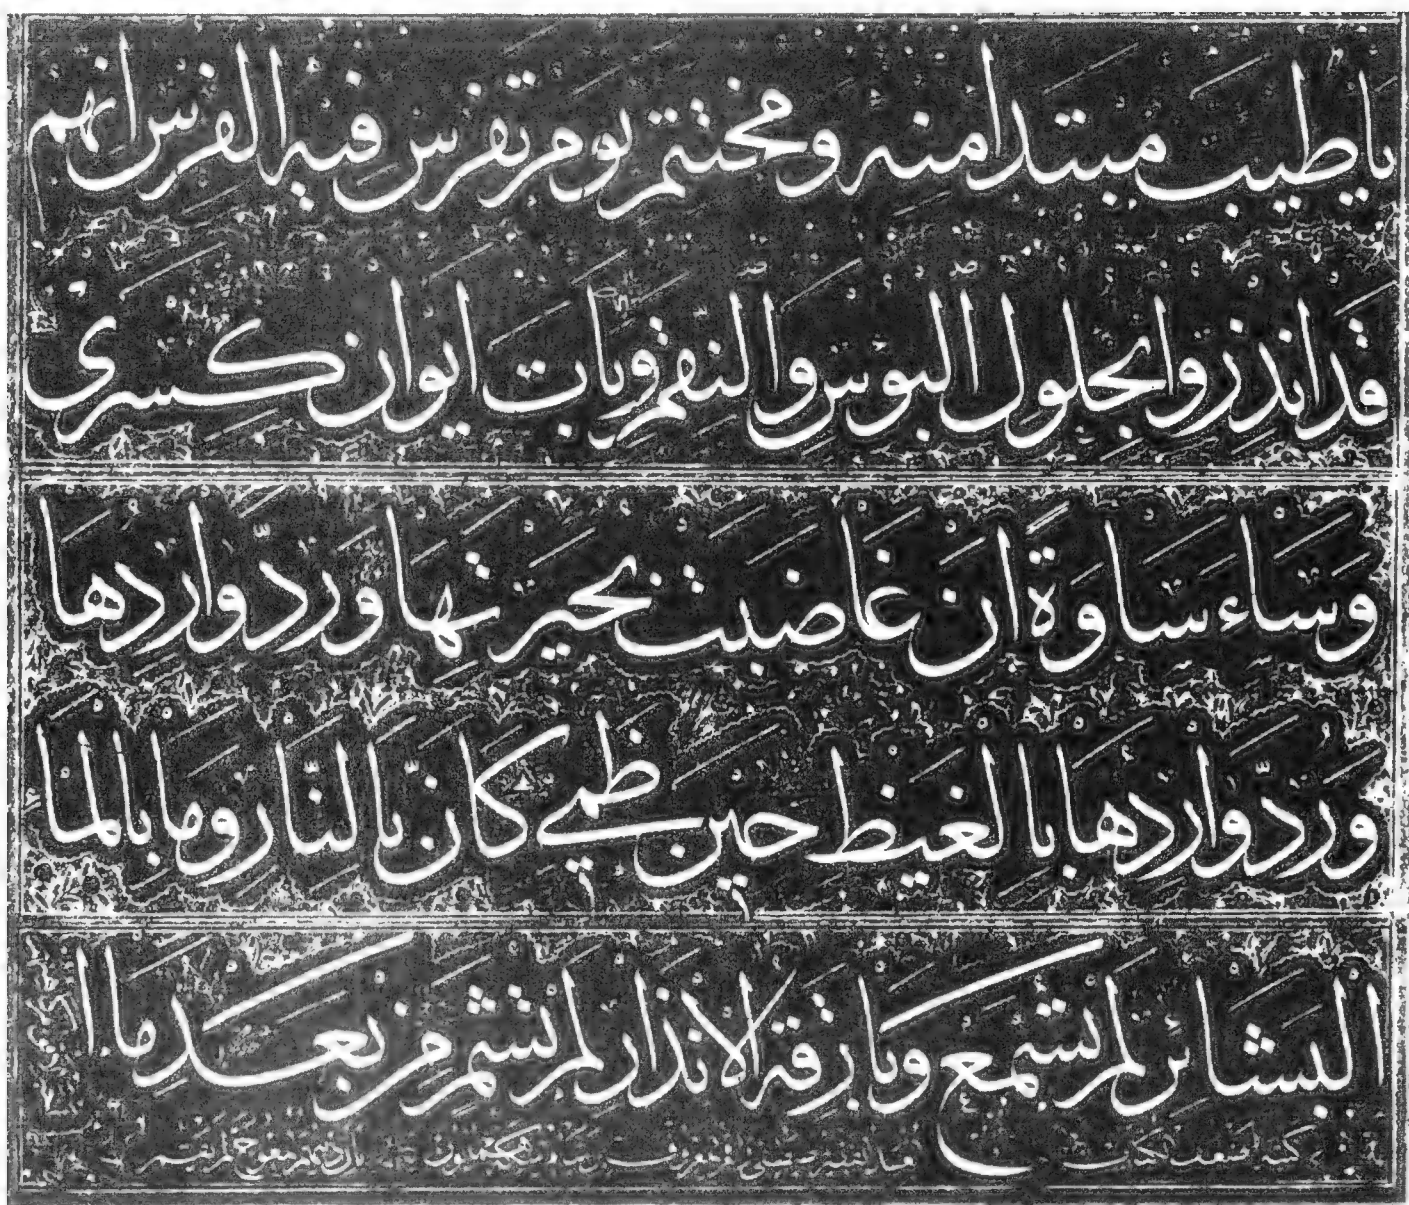 يا طيب مبتدا منه ومختتم يوم تفرس فيه الفرس انهم
قد انذروا بحلول البوس والنقم وبات ايوان كسرى
وَسَاء سَاوة ان غاضت بحيرتها وَرُدّ واردها
وَرُدّ واردها بالغيظ حين ظمي كان بالنار وما بالما
البشائر لم تسمع وبارقة الانذار لم تشم من بعد ما ا